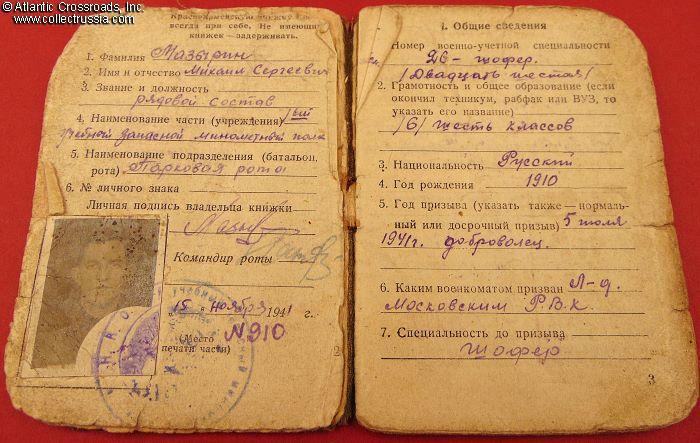 © Atlantic Crossroads, Inc.
www.collectrussia.com
Красноармейскую книжку
всегда при себе. Не имеющих
книжек — задерживать.
1. Фамилия Мазырин
2. Имя и отчество Михаил Сергеевич
3. Звание и должность
рядовой состав
4. Наименование части (учреждения) 1ый
учебной запасной миномётный полк
5. Наименование подразделения (батальон,
рота) Парковая рота
6. № личного знака
Личная подпись владельца книжки
Командир роты
15 ноября 1941 г.
(Место
печати части)
№910
2
I. Общие сведения
Номер военно-учетной специальности
26 - шофер.
/Двадцать шестая/
2. Грамотность и общее образование (если
окончил техникум, рабфак или ВУЗ, то
указать его название)
/6/ шесть классов
3. Национальность Русский
4. Год рождения 1910
5. Год призыва (указать также — нормаль-
ный или досрочный призыв) 5 июля
1941г. доброволец.
6. Каким военкоматом призван Л-д.
Московским Р.В.К.
7. Специальность до призыва
шофер
3